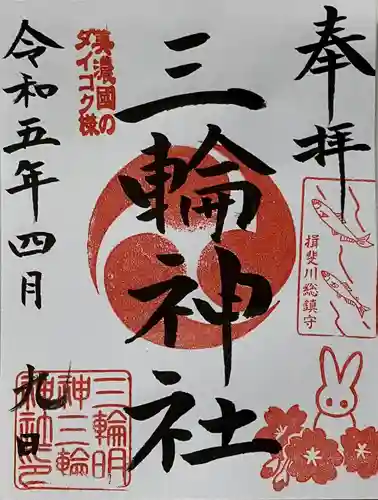 奉拝
揖斐川総鎮守
三輪神社
美濃國の
ダイコク様
三輪明
神三輪
神社之印
令和五年四月
九日